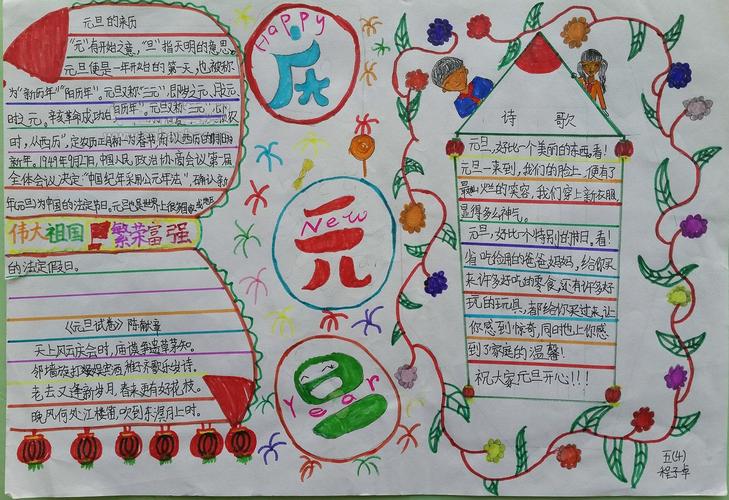 元旦的来历
"元"有开始之意,"旦"指天明的意思。
元旦便是一年开始的第一天,也被称
为"新历年""阳历年"。元旦又称"三元",即岁之元、月之元
时之元。辛亥革命成功后
时,从西历",定农历正月初一为春节
新年。1949年9月27日,中国人民政治协商会议第一届
全体会议决定"中国纪年采用公元年法",确认新
年元旦为中国的法定节日。元旦也是世界上很多国家或地区
伟大祖国 繁荣富强
的法定假日。
《元旦试卷》陈献章
天上风云庆会时,庙谟争遣草茅知。
邻墙旋打娱宾酒,稚子齐歌乐岁诗。
老去又逢新岁月,春来更有好花枝。
晚风何处江楼笛,吹到东溟月上时。
Happy
庆
New
元
Year
旦
诗 歌
元旦,好比一个美丽的东西。看!
元旦一来到,我们的脸上,便有了
最灿烂的笑容,我们穿上新衣服,
显得多么神气。
元旦,好比个特别的节日,看!
省吃俭用的爸爸妈妈,给你买
来许多好吃的零食,还有许多好
玩的玩具,都给你买过来,让
你感到惊奇,同时也上你感
到了家庭的温馨!
祝大家元旦开心!!!
五(4)
程子卓